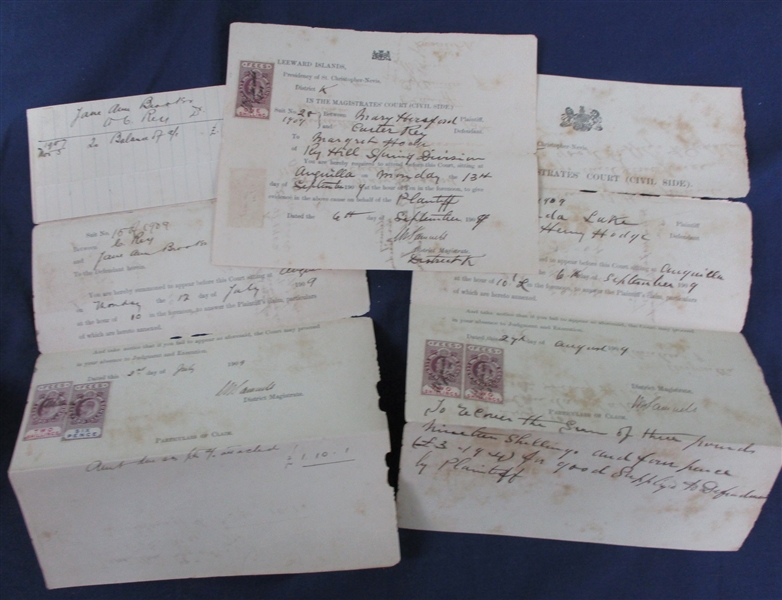 LEEWARD ISLANDS,
Presidency of St. Christopher-Nevis
District K
IN THE MAGISTRATES' COURT (CIVIL SIDE)
Suit No. 28 Between Mary Hereford Plaintiff
1909 and Carter Rey Defendant
To Margret Hodge
of Rey Hill Spring Division
You are hereby required to attend this Court, sitting at
Anguilla on Monday the 13th
day of September 1909 at the hour of 10 in the forenoon, to give
evidence in the above cause on behalf of the Plantiff
Dated the 6th day of September 1909
District Magistrate
District K
FEES
Jane Ann Brooks
To C Rey Dr
1907
Nov 5 To Balance of a/c £
Suit No. 1909
Between C Rey
and Jane Ann Brooks
To the Defendant herein.
You are hereby summoned to appear before this Court sitting at Anguilla
on Monday the 12 day of July 1909
at the hour of 10 in the forenoon, to answer the Plaintiff's Claim, particulars
of which are hereto annexed.
And take notice that if you fail to appear as aforesaid, the Court may proceed
in your absence to Judgment and Execution.
Dated this 2nd day of July 1909
District Magistrate.
FEES FEES
SIX PENCE
PARTICULARS OF CLAIM.
£ 1.10.1
Christopher-Nevis
MAGISTRATES' COURT (CIVIL SIDE).
1909
Lake Plaintiff
Henry Hodge Defendant
appear before this Court sitting at Anguilla
on the 6th day of September 1909
at the hour of 10 in the forenoon, to answer the Plaintiff's Claim, particulars
of which are hereto annexed.
And take notice that if you fail to appear as aforesaid, the Court may proceed
in your absence to Judgment and Execution.
Dated this 27th day of August 1909
District Magistrate.
FEES FEES
PARTICULARS OF CLAIM.
To Recover the Sum of three pounds
Nineteen Shillings and four pence
(£3-19-4) for good Supply'd to Defendant
by Plaintiff